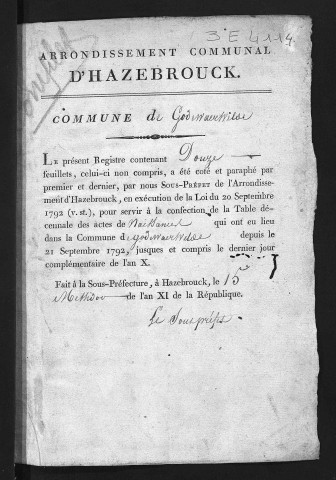 3 E 4114
ARRONDISSEMENT COMMUNAL
D'HAZEBROUCK.
COMMUNE de Godewaerswelde
LE présent Registre contenant Douze
feuillets, celui-ci non compris, a été coté et paraphé par
premier et dernier, par nous SOUS-PRÉFET de l'Arrondisse-
ment d'Hazebrouck, en exécution de la Loi du 20 Septembre
1792 (v. st.), pour servir à la confection de la Table dé-
cennale des actes de Naissances qui ont eu lieu
dans la Commune de godewaerswelde depuis le
21 Septembre 1792, jusques et compris le dernier jour
complémentaire de l'an X.
Fait à la Sous-Préfecture, à Hazebrouck, le 15
Messidor de l'an XI de la République.
Le Sous préfet